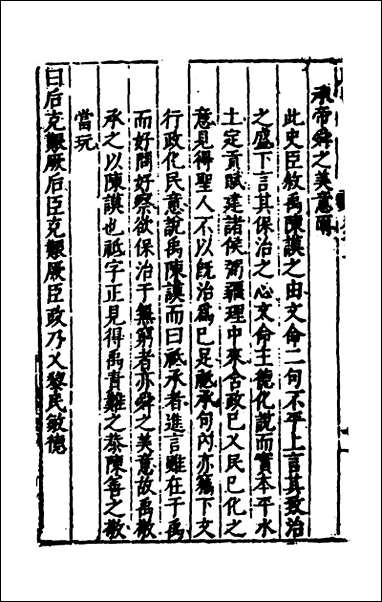 承帝舜之美意歟
此史臣敘禹陳謨之由文命二句不平上言其致治
之盛下言其保治之心文命主德化說而實本平水
土定貢賦建諸侯弼疆理中來含政已乂民已化之
意見得聖人不以既治為已足祗承句內亦籠下文
行政化民意說禹陳謨而曰祗承者進言雖在于禹
而好問好察欲保治于無窮者亦舜之美意故禹敬
承之以陳謨也祗字正見得禹責難之恭陳善之敬
當玩
曰后克艱厥后臣克艱厥臣政乃乂黎民敏德